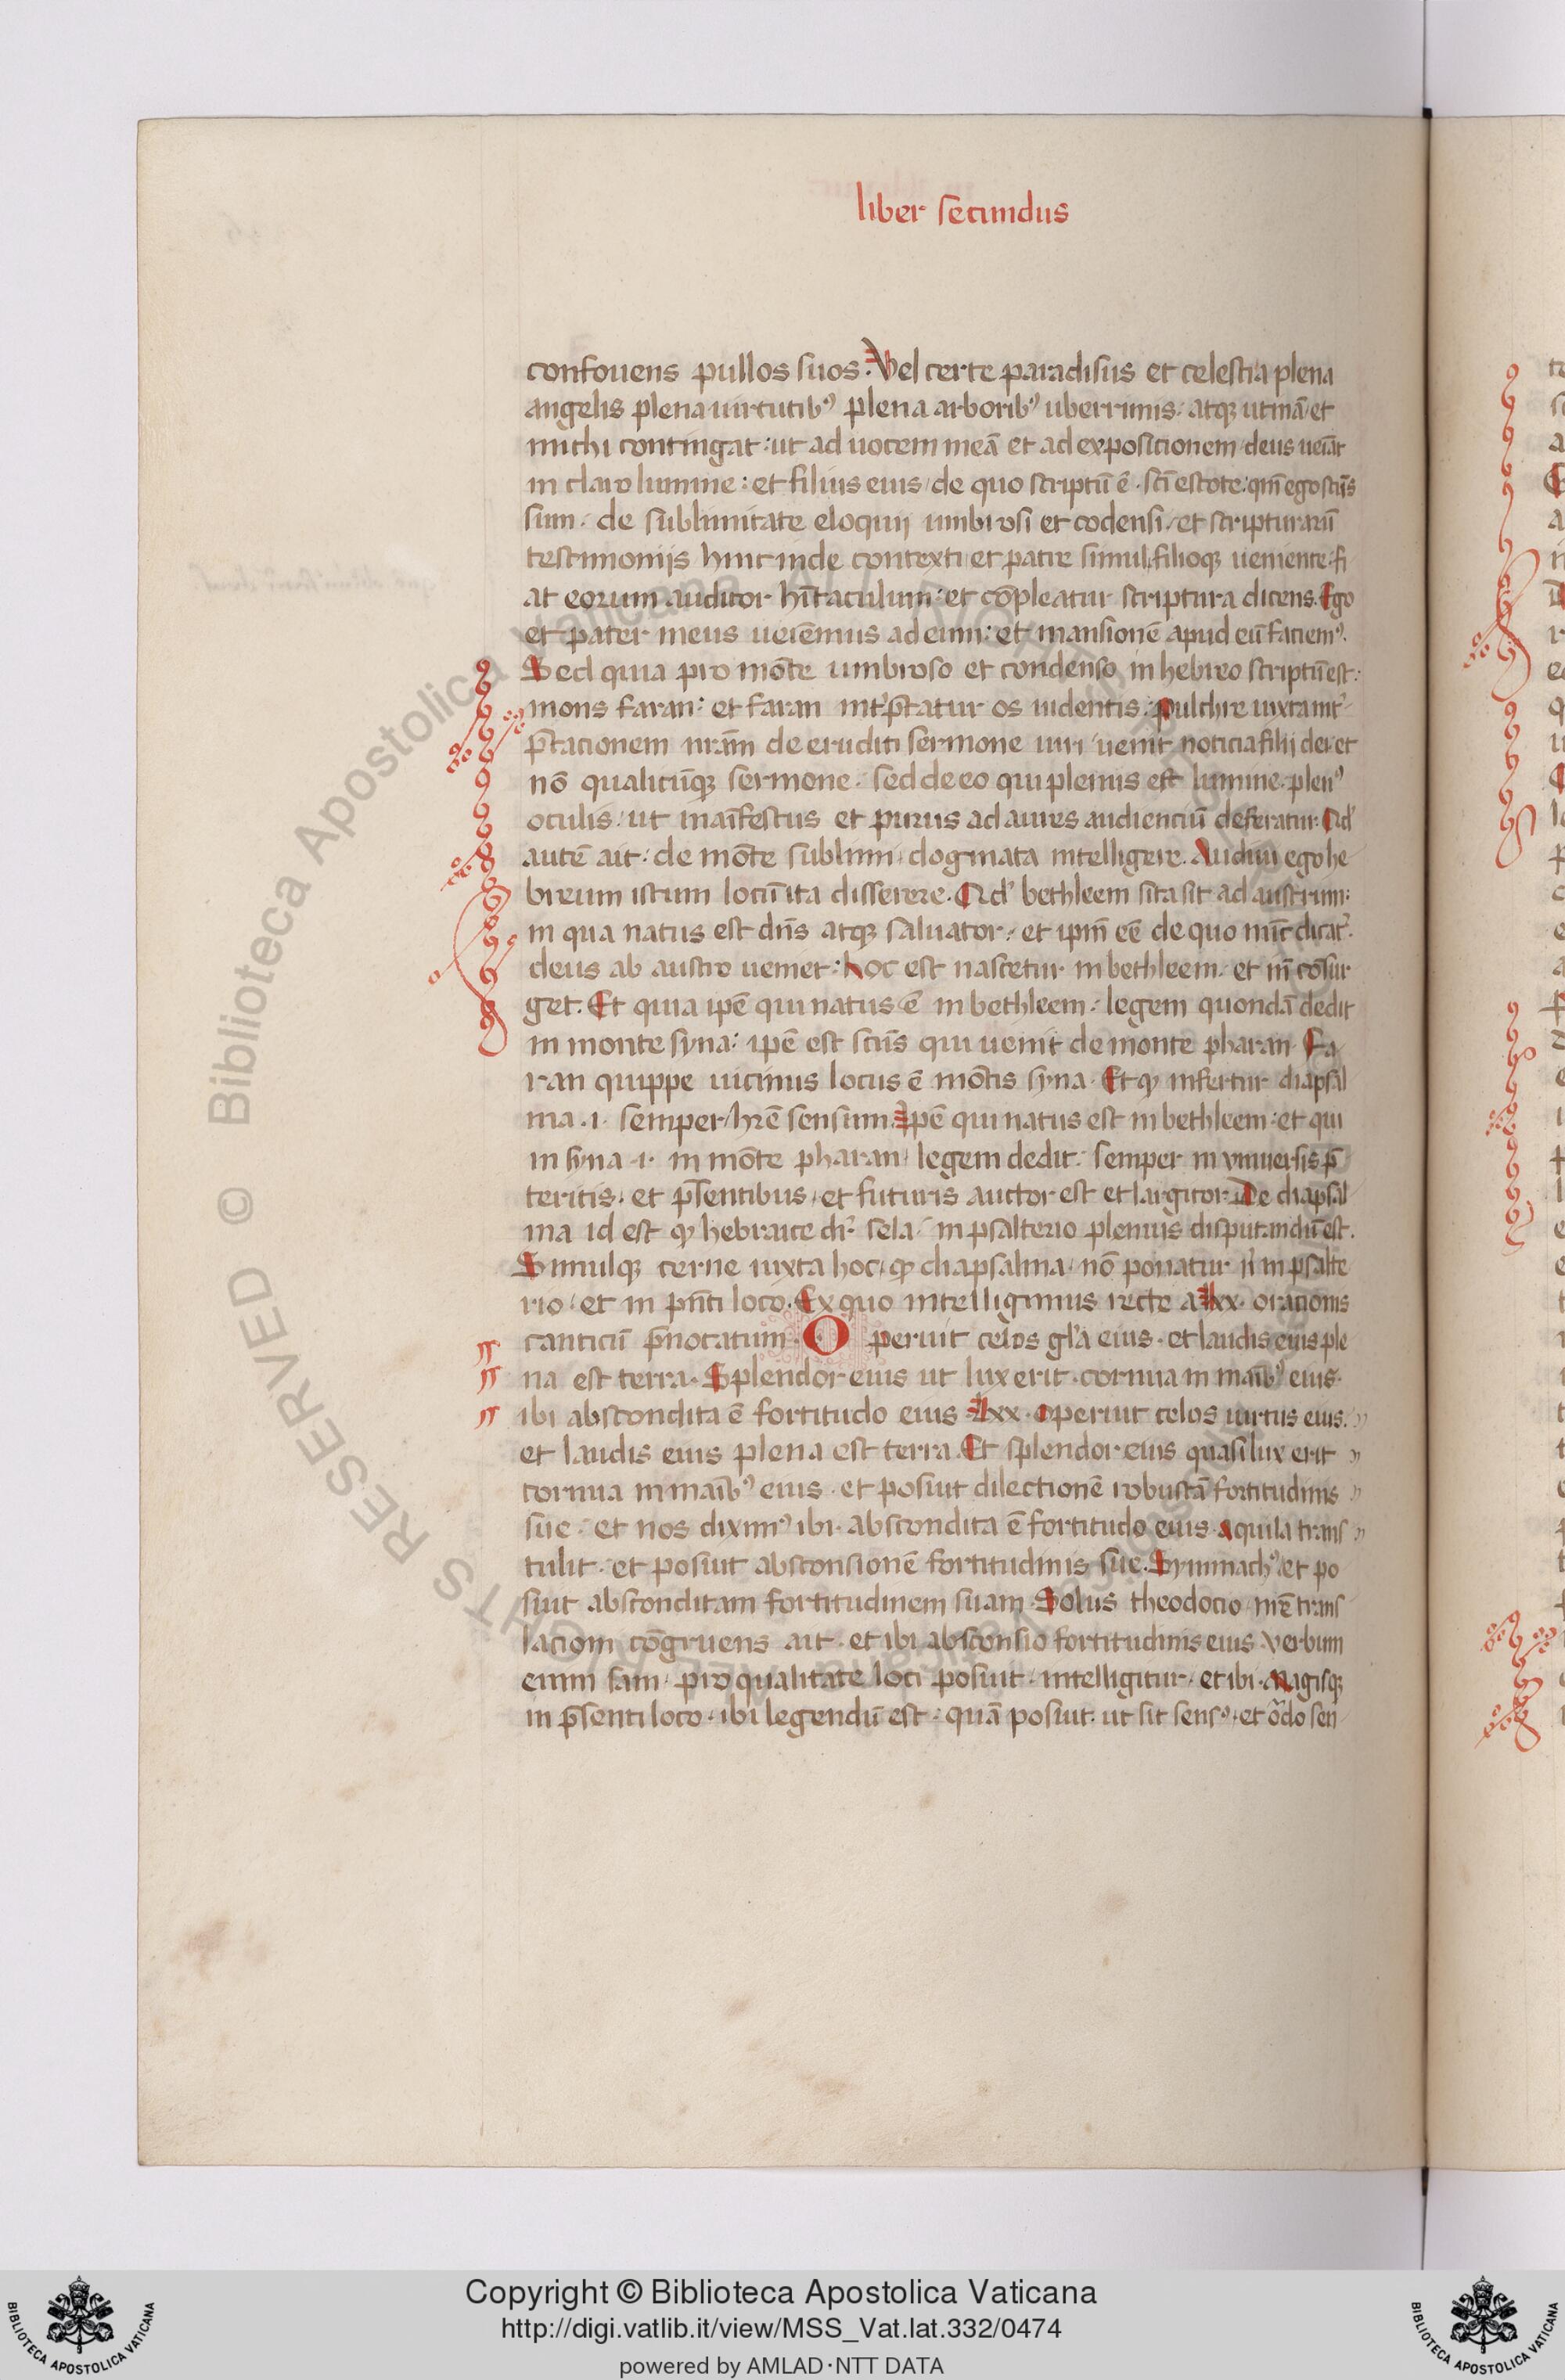 liber secundus
confouens pullos suos. Vel certe paradisus et celestia plena
angelis plena uirtutibꝰ plena arboribꝰ uberrimis. atqꝫ utinā et
michi contingat: ut ad uocem meā et ad expositionem deus ueīat
in claro lumine: et filius eius de quo scriptū ē. sc̄i estote: qm̄ ego sc̄us
sum. de sublimitate eloquij umbrosi et codensi. et scripturarū
testimonijs hinc inde contexti et patre simul filioqꝫ ueniente. fi
at eorum auditor hītaculum: et cōpleatur scriptura dicens. Ego
et pater meus ueīemus ad eum: et mansionē apud eū faciemꝰ.
Sed quia pro mōte umbroso et condenso in hebreo scriptū est:
mons faran: et faran int̓p̄tatur os uidentis: pulchre iuxta int̓
p̄tacionem nr̄am de eruditi sermone uiri uenit noticia filij dei et
nō qualicūqꝫ sermone. sed de eo qui plenus est lumine. plenꝰ
oculis. ut maīfestus et purus ad aures audienciū deferatur. Qd̓
autē ait. de mōte sublimi dogmata intelligere. Audiui ego he
breum istum locū ita disserere. Qd̓ bethleem sita sit ad austrum:
in qua natus est dn̄s atqꝫ saluator. et ip̄m eē de quo nūc dicat̓.
deus ab austro ueniet: hoc est nascetur in bethleem. et īn cōsur
get. Et quia ip̄e qui natus ē in bethleem. legem quondā dedit
in monte syna: ip̄e est sc̄us qui uenit de monte pharan. Fa
ran quippe uicinus locus ē mōtis syna. Et qꝫ infertur diapsal
ma .i. semper hr̄e sensum. Ip̄e qui natus est in bethleem: et qui
in syna .i. in mōte pharan legem dedit. semper in vniuersis p̄
teritis. et p̄sentibus. et futuris auctor est et largitor. De diapsal
ma id est qꝫ hebraice dr̓ sela. in psalterio plenius disputandū est.
Simulqꝫ cerne iuxta hoc. qꝫ diapsalma. nō ponatur n̓ in psalte
rio. et in pn̄ti loco. Ex quo intelligimus recte a lxx. orationis
canticū p̄notatum. Operuit celos gl̓a eius. et laudis eius ple
na est terra. Splendor eius ut lux erit. cornua in maībꝰ eius.
ibi abscondita ē fortitudo eius. Lxx. operuit celos uirtus eius.
et laudis eius plena est terra. Et splendor eius quasi lux erit
cornua in maībꝰ eius. et posuit dilectionē robustā fortitudinis
sue. et nos diximꝰ ibi abscondita ē fortitudo eius. aquila trans
tulit. et posuit absconsionē fortitudinis sue. Symmachꝰ et po
suit absconditam fortitudinem suam. Solus theodocio mē trans
lacioni cōgruens ait. et ibi absconsio fortitudinis eius. verbum
enim sam. pro qualitate loci posuit. intelligitur. et ibi. Magisqꝫ
in p̄senti loco. ibi legendū est. quā posuit. ut sit sensꝰ. et ōdo sen
© Biblioteca Apostolica Vaticana
RIGHTS RESERVED
Copyright © Biblioteca Apostolica Vaticana
http://digi.vatlib.it/view/MSS_Vat.lat.332/0474
powered by AMLAD·NTT DATA
BIBLIOTECA APOSTOLICA VATICANA
BIBLIOTECA APOSTOLICA VATICANA